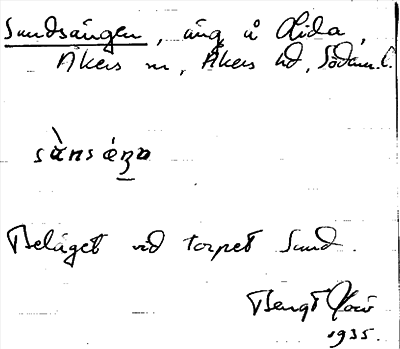 Sundsängen, äng å Lida,
Åkers sn, Åkers hd, Södm. l.
Beläget vid torpet Sund.
Bengt
1935.